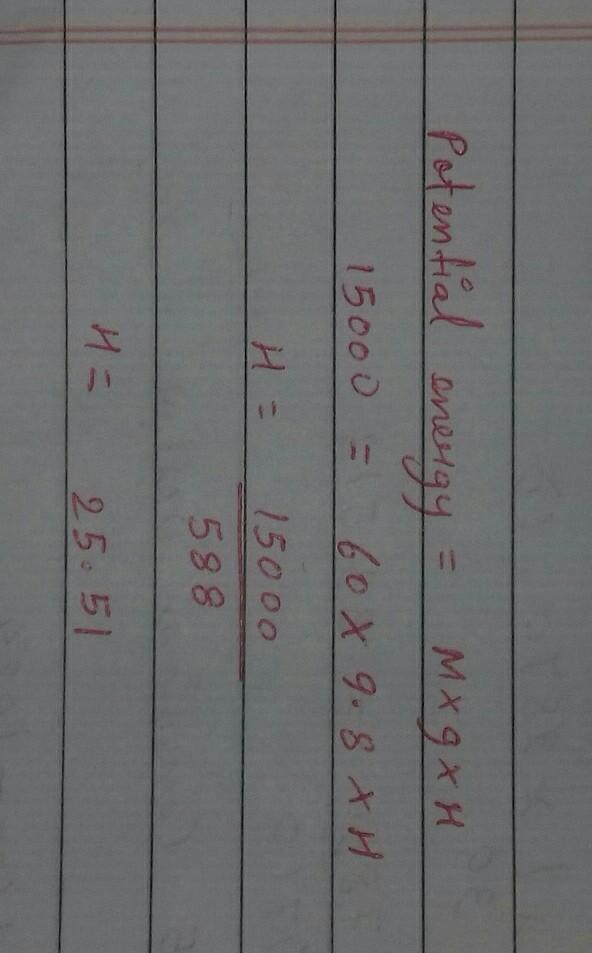 Potential energy = M x g x H
15000 = 60 x 9.8 x H
H = 15000
588
H = 25.51